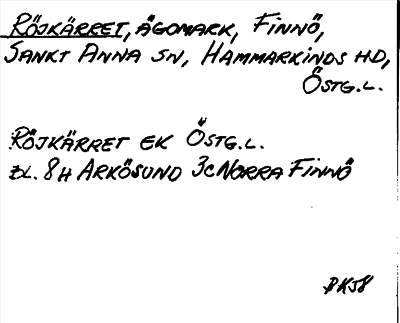 RÖJKÄRRET, ÄGOMARK, FINNÖ,
SANKT ANNA SN, HAMMARKINDS HD,
ÖSTG.L.
RÖJKÄRRET EK ÖSTG.L.
BL. 8H ARKÖSUND 3C NORRA FINNÖ